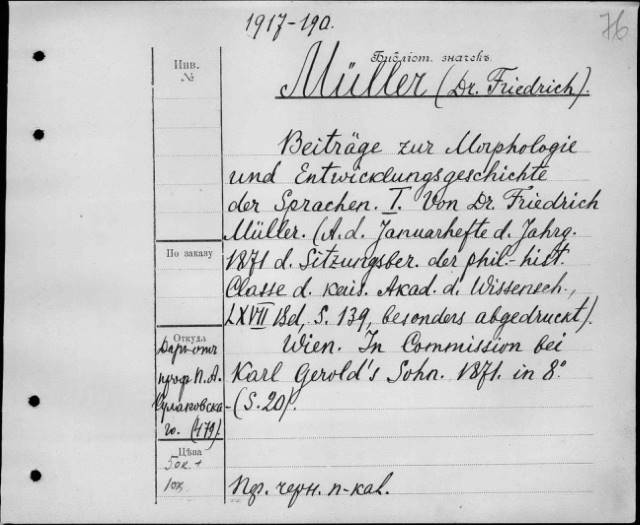 1917-19a.
76
Инв.
№
Библіот. значекъ.
Müller (Dr. Friedrich).
Beiträge zur Morphologie
und Entwicklungsgeschichte
der Sprachen. I. Von Dr. Friedrich
Müller. (A. d. Januarhefte d. Jahrg.
1871 d. Sitzungsber. der phil.-hist.
Classe d. kais. Akad. d. Wissensch.,
LXVII Bd, S. 139, besonders abgedruckt).
Wien. In Commission bei
Karl Gerold's Sohn. 1871. in 8°
(S. 20).
По заказу
Откуда
Даръ отъ
проф. П. А.
го. (179).
Цѣна
5 ок. +
черн. п-кал.